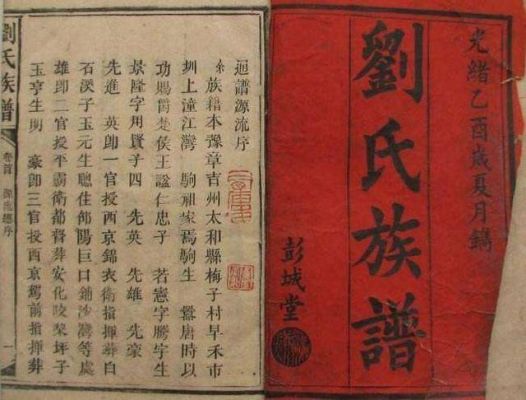 光緒乙酉歲夏月鐫
劉氏族譜
彭城堂
迴譜源流序
余族籍本豫章吉州太和縣梅子村早禾市
圳上潼江灣 駒祖家焉駒生 唐時以
功賜爵楚侯王諡仁忠子 若憲字騰宇生
景隆字用賢子四 先英 先雄 先豪
先進 英郎一官授西京錦衣衛指揮葬白
石渓子玉元生聰住邵陽巨口鋪沙灣等處
雄郎二官授平霸衛都督葬安化陵梨坪子
玉亨生明 豪郎三官授西京駕前指揮葬
劉氏族譜
卷首 源流總序 一